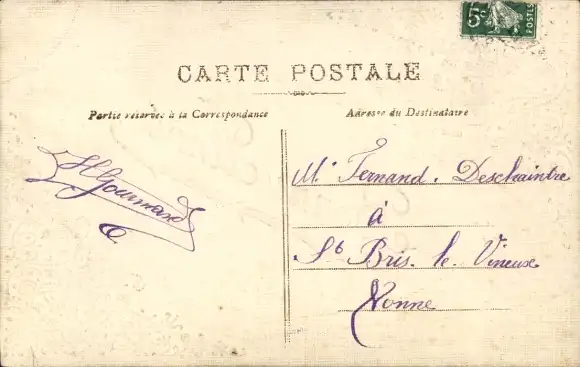 5c
POSTES
CARTE POSTALE
Partie réservée à la Correspondance
Adresse du Destinataire
H Gourmand
Mr Fernand. Deschaintre
à
St Bris. le. Vineux
Yonne